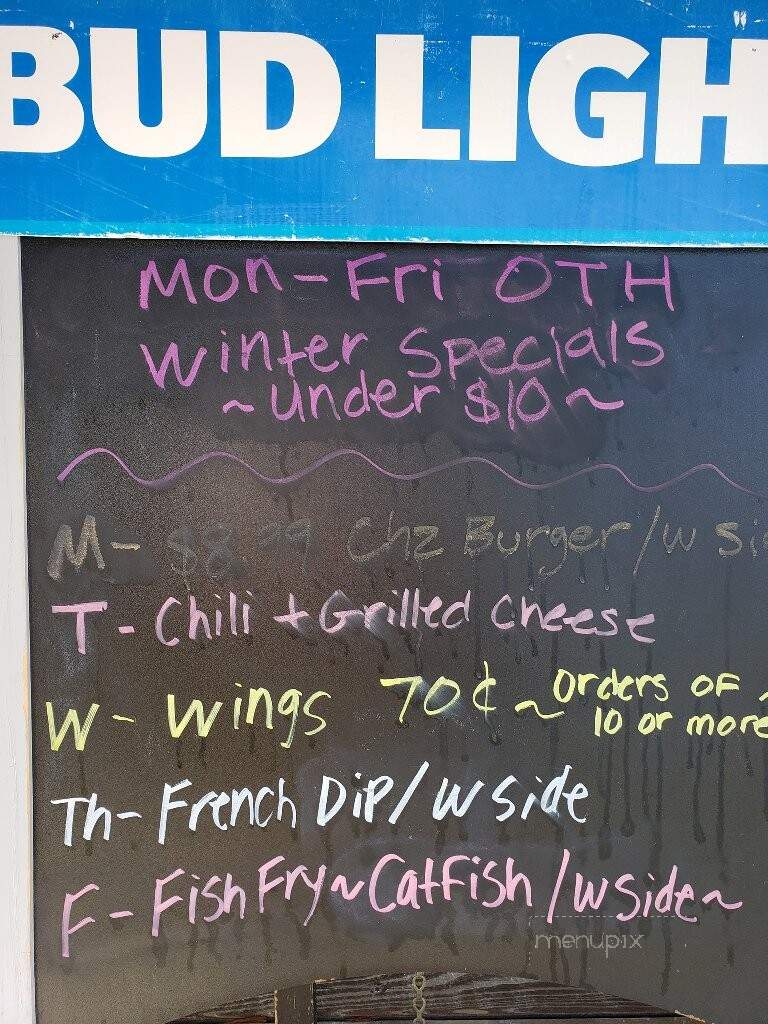 BUD LIGH
Mon-Fri OTH
Winter Specials
~under $10~
M- $8.99 Chz Burger/w si
T- Chili + Grilled Cheese
W- Wings 70¢ ~ Orders OF
10 or more
Th- French Dip/w side
F- Fish Fry~Catfish/w side~
menupix